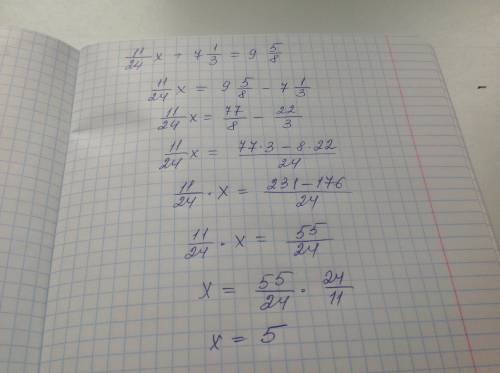 11/24 x + 7 1/3 = 9 5/8
11/24 x = 9 5/8 - 7 1/3
11/24 x = 77/8 - 22/3
11/24 x = 77·3 - 8·22/24
11/24 · x = 231-176/24
11/24 · x = 55/24
x = 55/24 · 24/11
x = 5